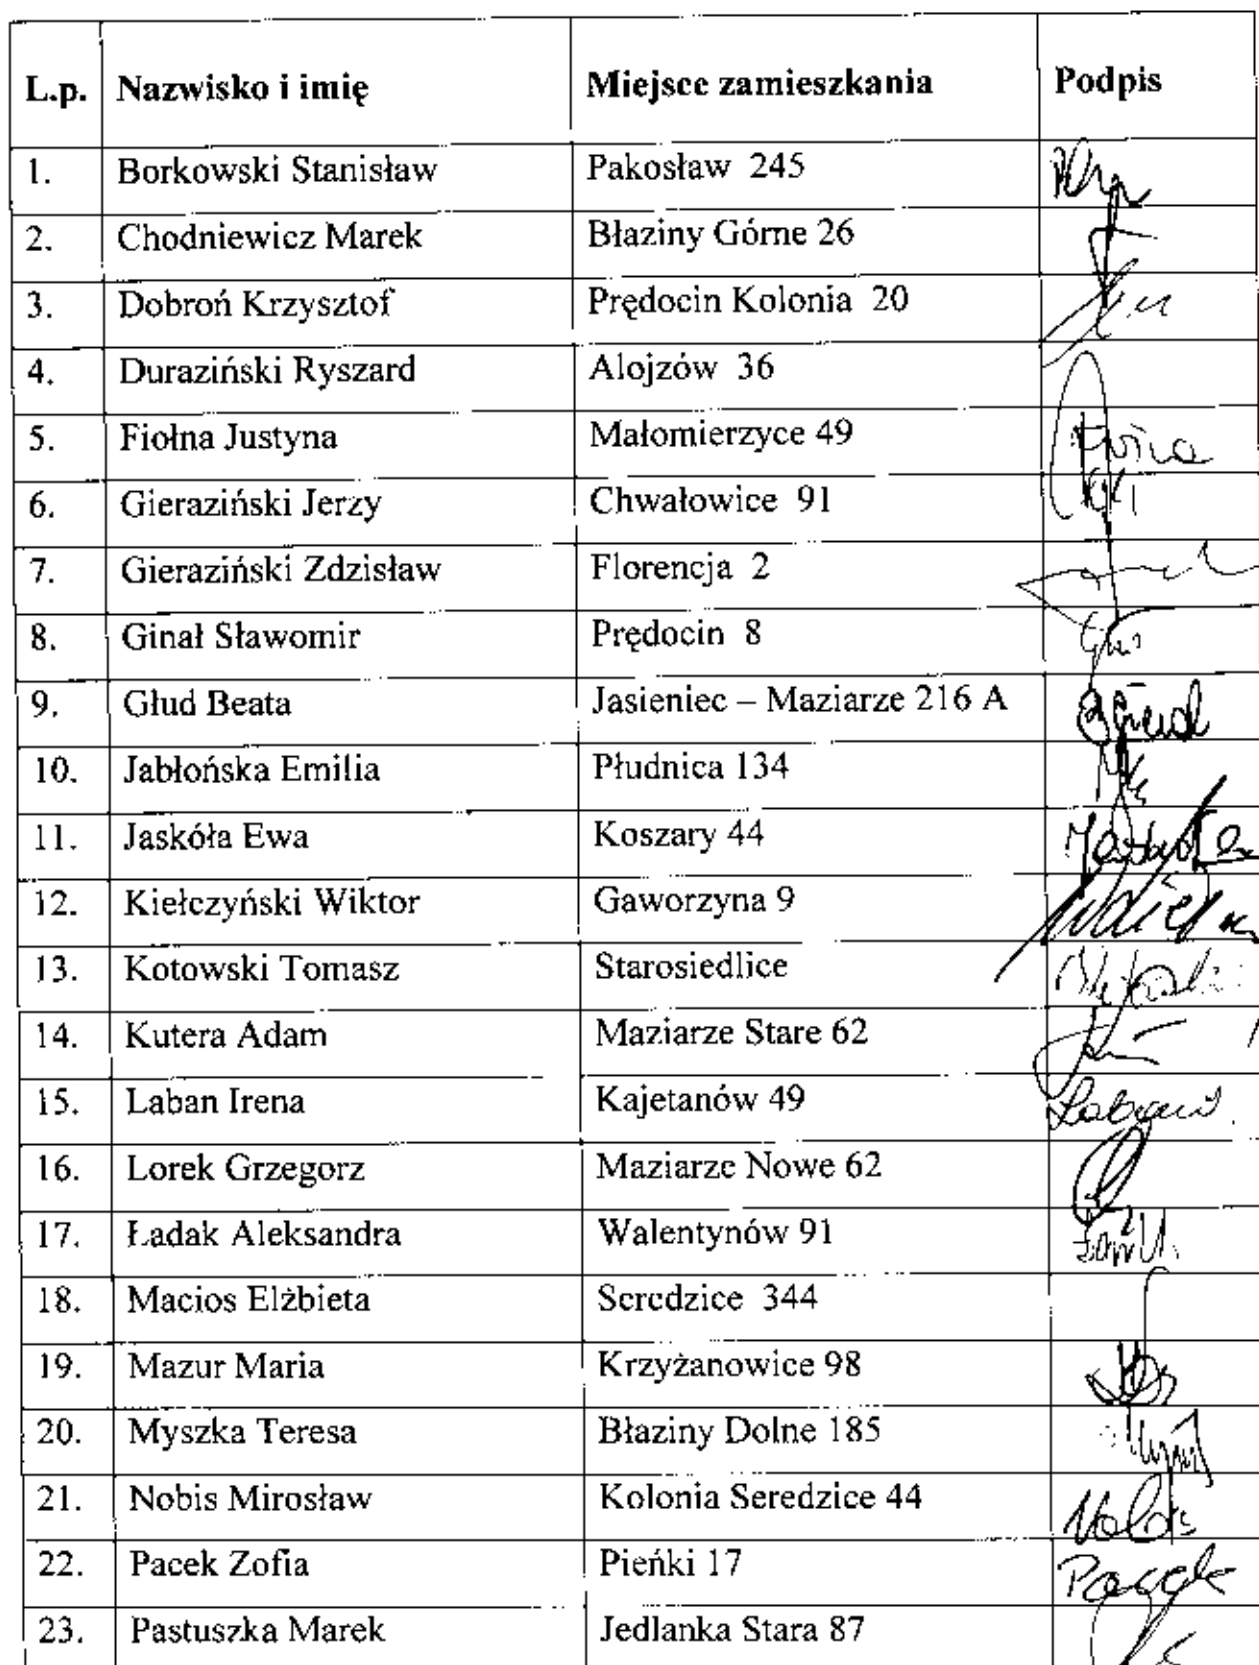 L.p. Nazwisko i imię Miejsce zamieszkania Podpis
1. Borkowski Stanisław Pakosław 245
2. Chodniewicz Marek Błaziny Górne 26
3. Dobroń Krzysztof Prędocin Kolonia 20
4. Duraziński Ryszard Alojzów 36
5. Fiołna Justyna Małomierzyce 49
6. Gieraziński Jerzy Chwałowice 91
7. Gieraziński Zdzisław Florencja 2
8. Ginał Sławomir Prędocin 8
9. Głud Beata Jasieniec – Maziarze 216 A
10. Jabłońska Emilia Płudnica 134
11. Jaskóła Ewa Koszary 44
12. Kiełczyński Wiktor Gaworzyna 9
13. Kotowski Tomasz Starosiedlice
14. Kutera Adam Maziarze Stare 62
15. Laban Irena Kajetanów 49
16. Lorek Grzegorz Maziarze Nowe 62
17. Ładak Aleksandra Walentynów 91
18. Macios Elżbieta Seredzice 344
19. Mazur Maria Krzyżanowice 98
20. Myszka Teresa Błaziny Dolne 185
21. Nobis Mirosław Kolonia Seredzice 44
22. Pacek Zofia Pieńki 17 Pacek
23. Pastuszka Marek Jedlanka Stara 87